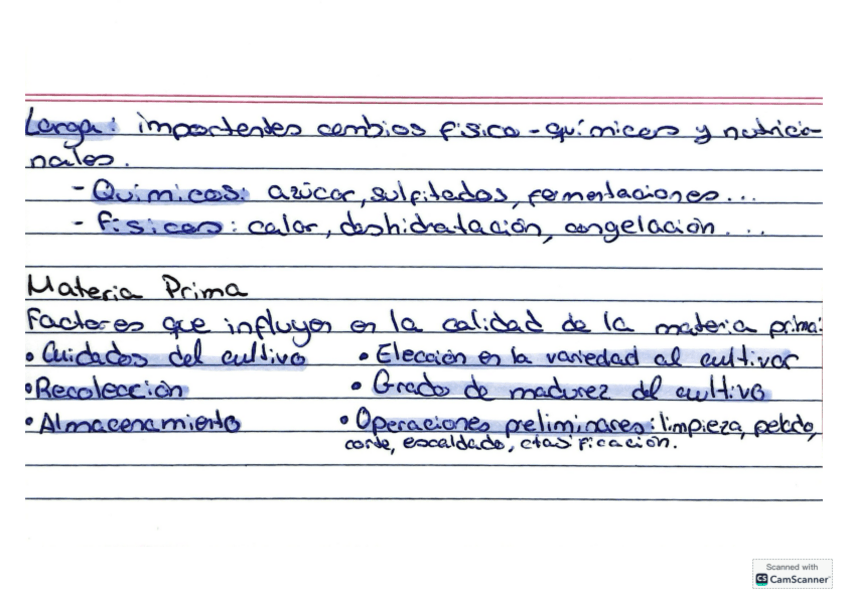 Larga: importantes cambios físico-químicos y nutricio-
nales.
- Químicos: azúcar, sulfitados, fermentaciones...
- Físicos: calor, deshidratación, congelación...
Materia Prima
Factores que influyen en la calidad de la materia prima:
• Cuidados del cultivo • Elección en la variedad al cultivar
• Recolección • Grado de madurez del cultivo
• Almacenamiento • Operaciones preliminares: limpieza, pelado,
corte, escaldado, clasificación.
Scanned with
CS CamScanner